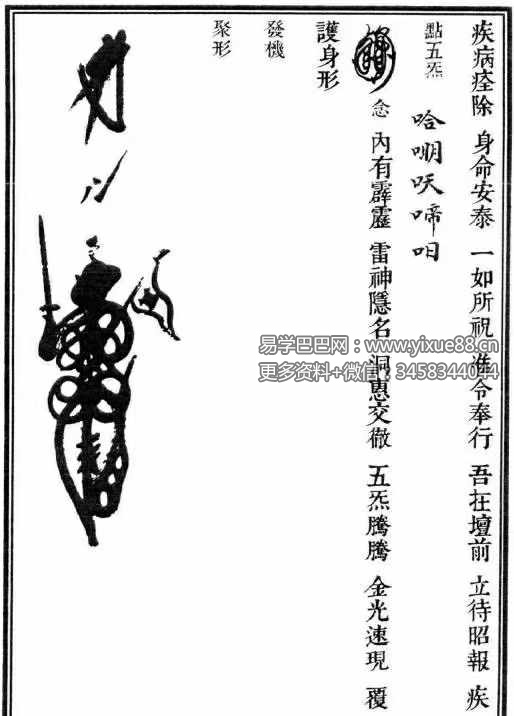 疾病痊除 身命安泰 一如所祝 准令奉行 吾在壇前 立待昭報 疾
點五炁
哈 啼
念 內有霹靂 雷神隱名 洞惠交徹 五炁騰騰 金光速現 覆
護身形
發機
聚形
易学巴巴网：www.yixue88.cn
更多资料+微信：3458344044